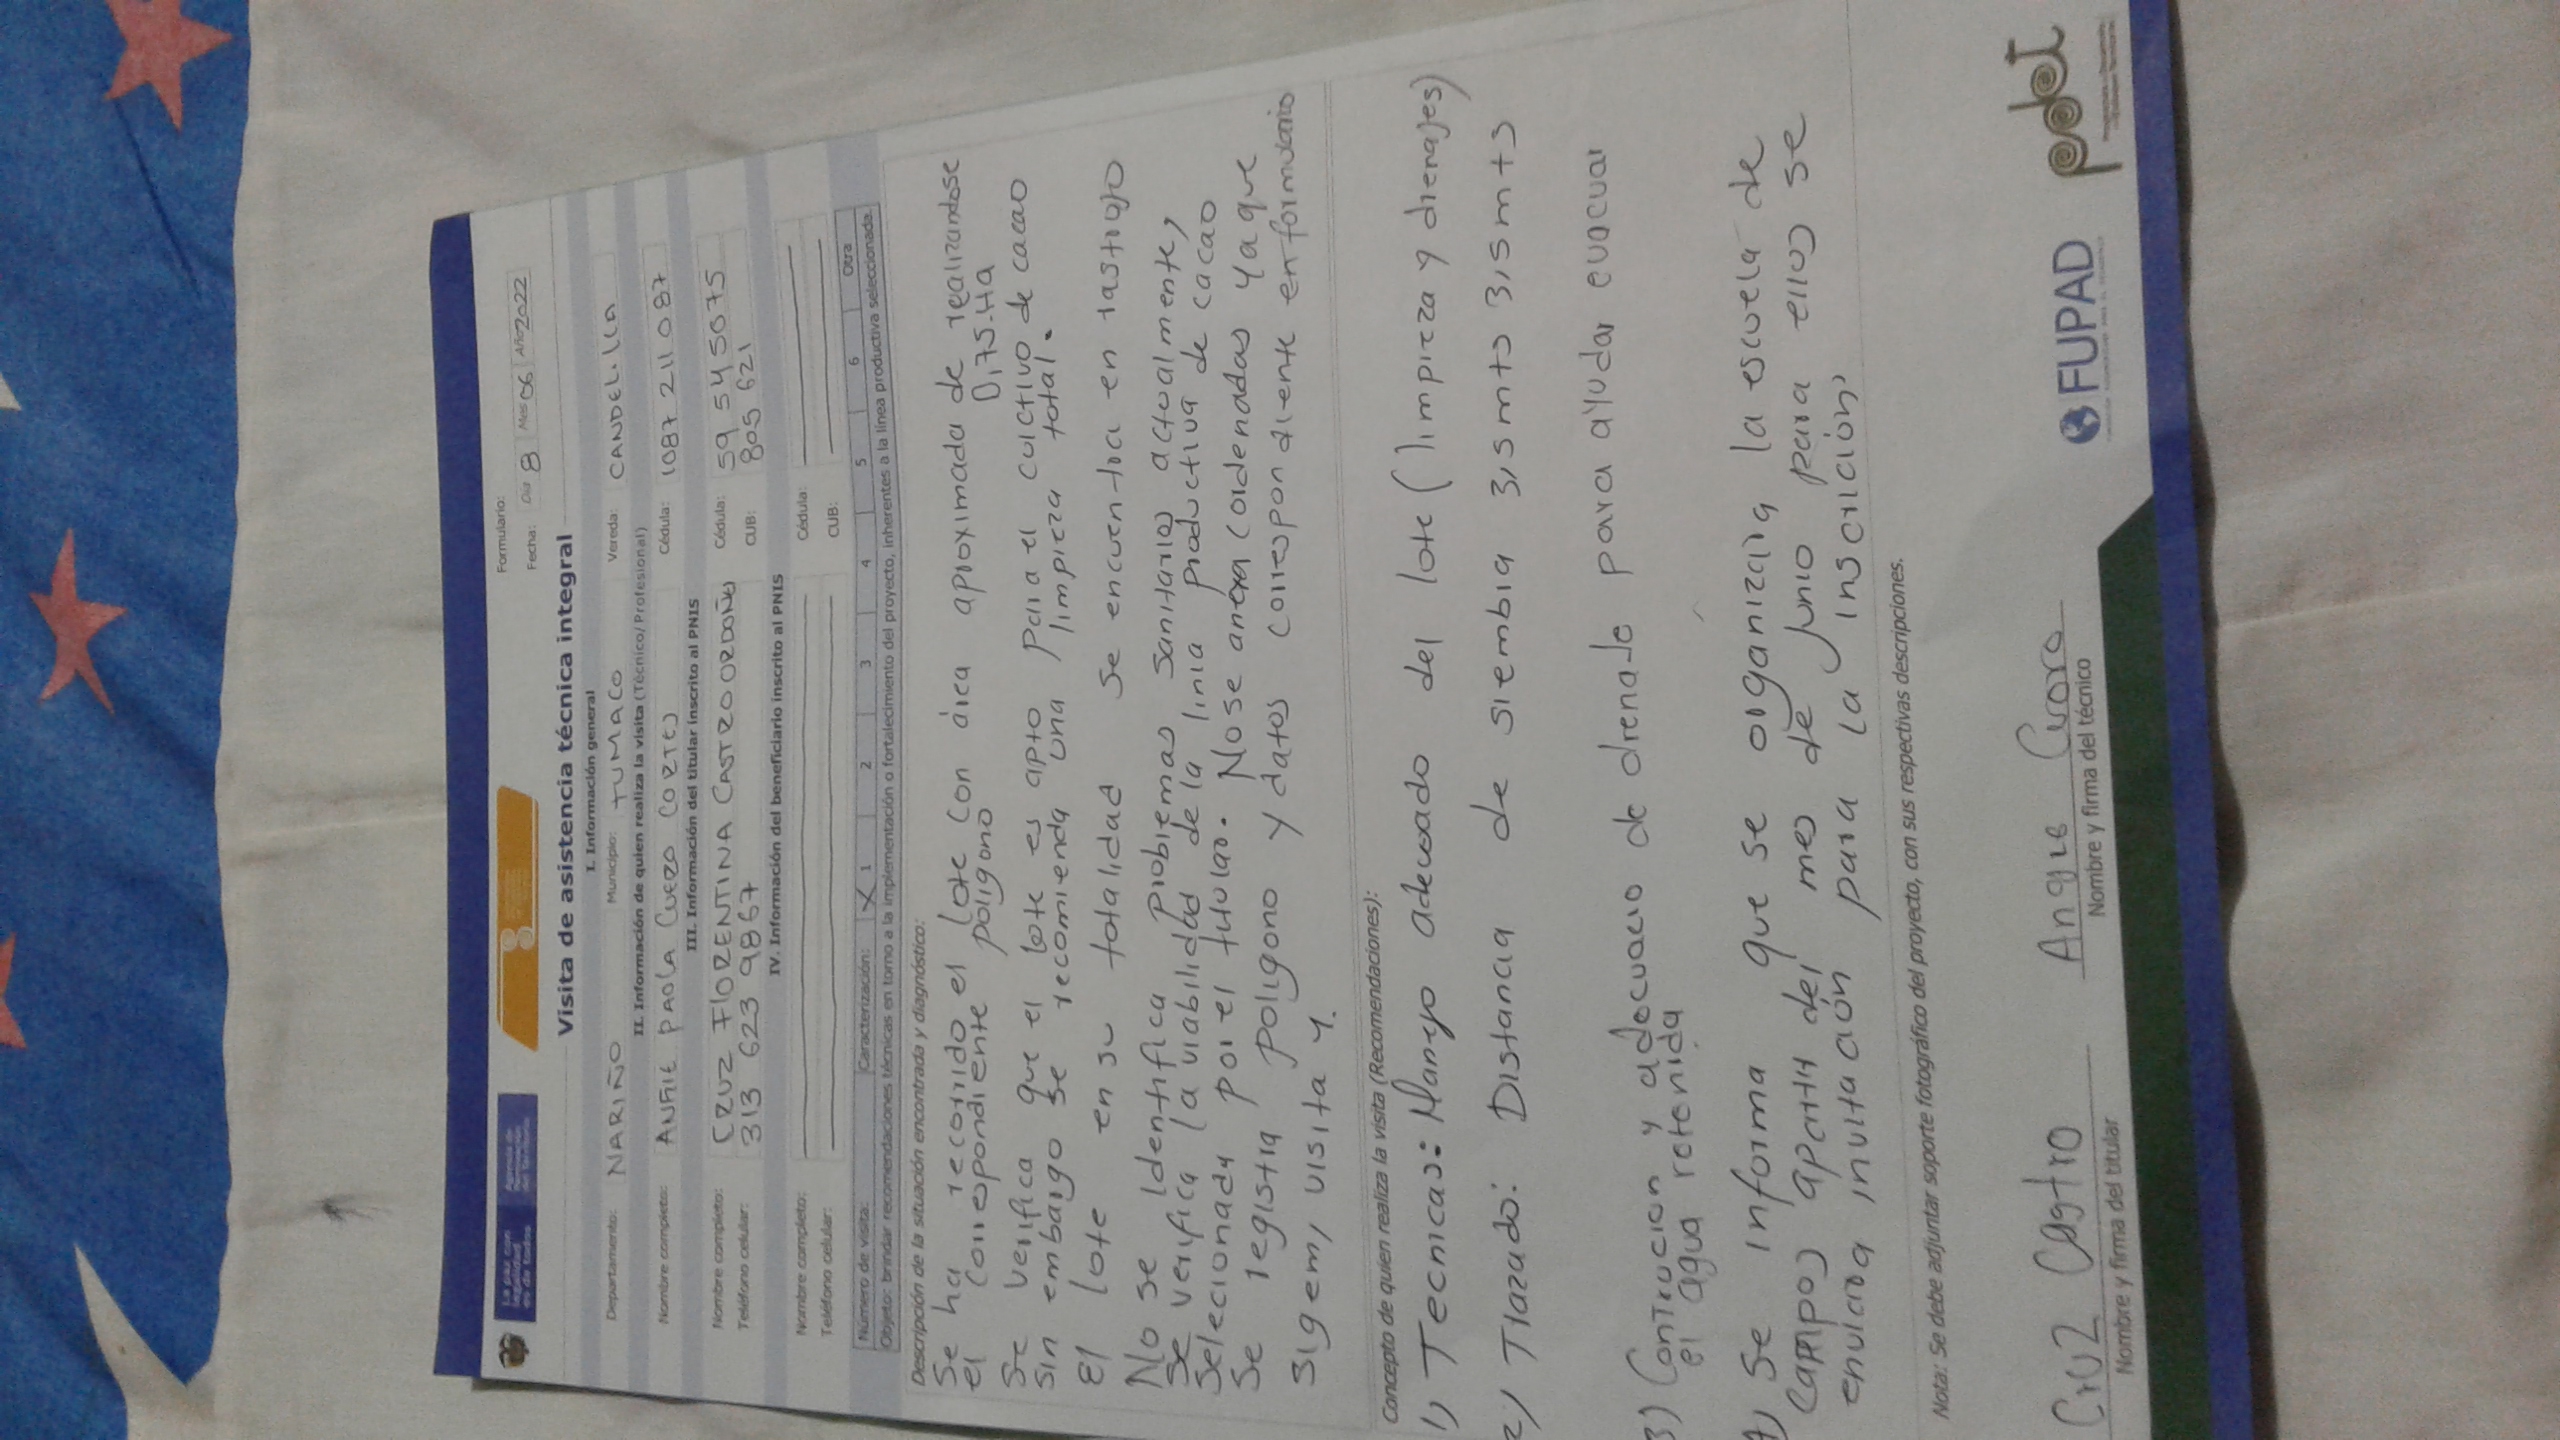 La paz con legalidad es de todos
Agencia de Renovación del Territorio
Formulario:
Fecha: Día 8 Mes 06 Año 2022
Visita de asistencia técnica integral
I. Información general
Departamento: NARIÑO Municipio: TUMACO Vereda: CANDELILLA
II. Información de quien realiza la visita (Técnico/Profesional)
Nombre completo: PAOLA CUERO CORTES Cédula: 1087 211 087
III. Información del titular inscrito al PNIS
Nombre completo: CRUZ FLORENTINA CASTRO ORDOÑES Cédula: 59 545075
Teléfono celular: 313 623 9867 CUB: 805 621
IV. Información del beneficiario inscrito al PNIS
Nombre completo: Cédula:
Teléfono celular: CUB:
Número de visita: Caracterización: X 1 2 3 4 5 6 Otra
Objeto: brindar recomendaciones técnicas en torno a la implementación o fortalecimiento del proyecto, inherentes a la línea productiva seleccionada.
Descripción de la situación encontrada y diagnóstico:
Se ha recorrido el lote con área aproximada de realizandose
el correspondiente poligono 0,75.Ha
Se verifica que el lote es apto para el cultivo de cacao
sin embargo se recomienda una limpieza total.
El lote en su totalidad se encuentra en rastrojo
No se identifica problemas sanitarios actualmente,
se verifica la viabilidad de la linia productiva de cacao
Selecionada por el titular. No se anexa cordenadas ya que
Se registra polygono y datos correspondiente en formulario
sigem, visita 1.
Concepto de quien realiza la visita (Recomendaciones):
1) Tecnicas: Manejo adecuado del lote (limpieza y drenajes)
2) Trazado: Distancia de siembra 3,5 mts 3,5 mts
3) Contrucion y adecuacio de drenale para ayudar evacuar
el agua retenida
4) Se informa que se organizara la escuela de
campos apartir del mes de Junio para ellos se
enviara invitación para la inscrición,
Nota: Se debe adjuntar soporte fotográfico del proyecto, con sus respectivas descripciones.
Cruz Castro
Nombre y firma del titular
Angie Cuero
Nombre y firma del técnico
FUPAD
pdet